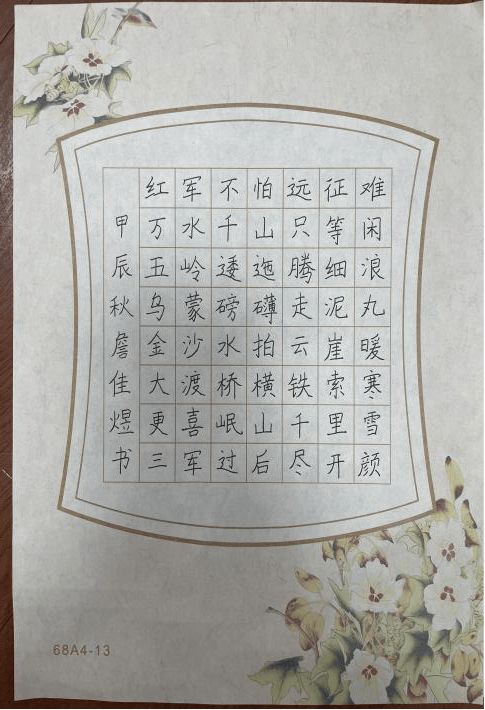 红军不怕远征难
万水千山只等闲
五岭逶迤腾细浪
乌蒙磅礴走泥丸
金沙水拍云崖暖
大渡桥横铁索寒
更喜岷山千里雪
三军过后尽开颜
甲辰秋詹佳煜书
68A4-13